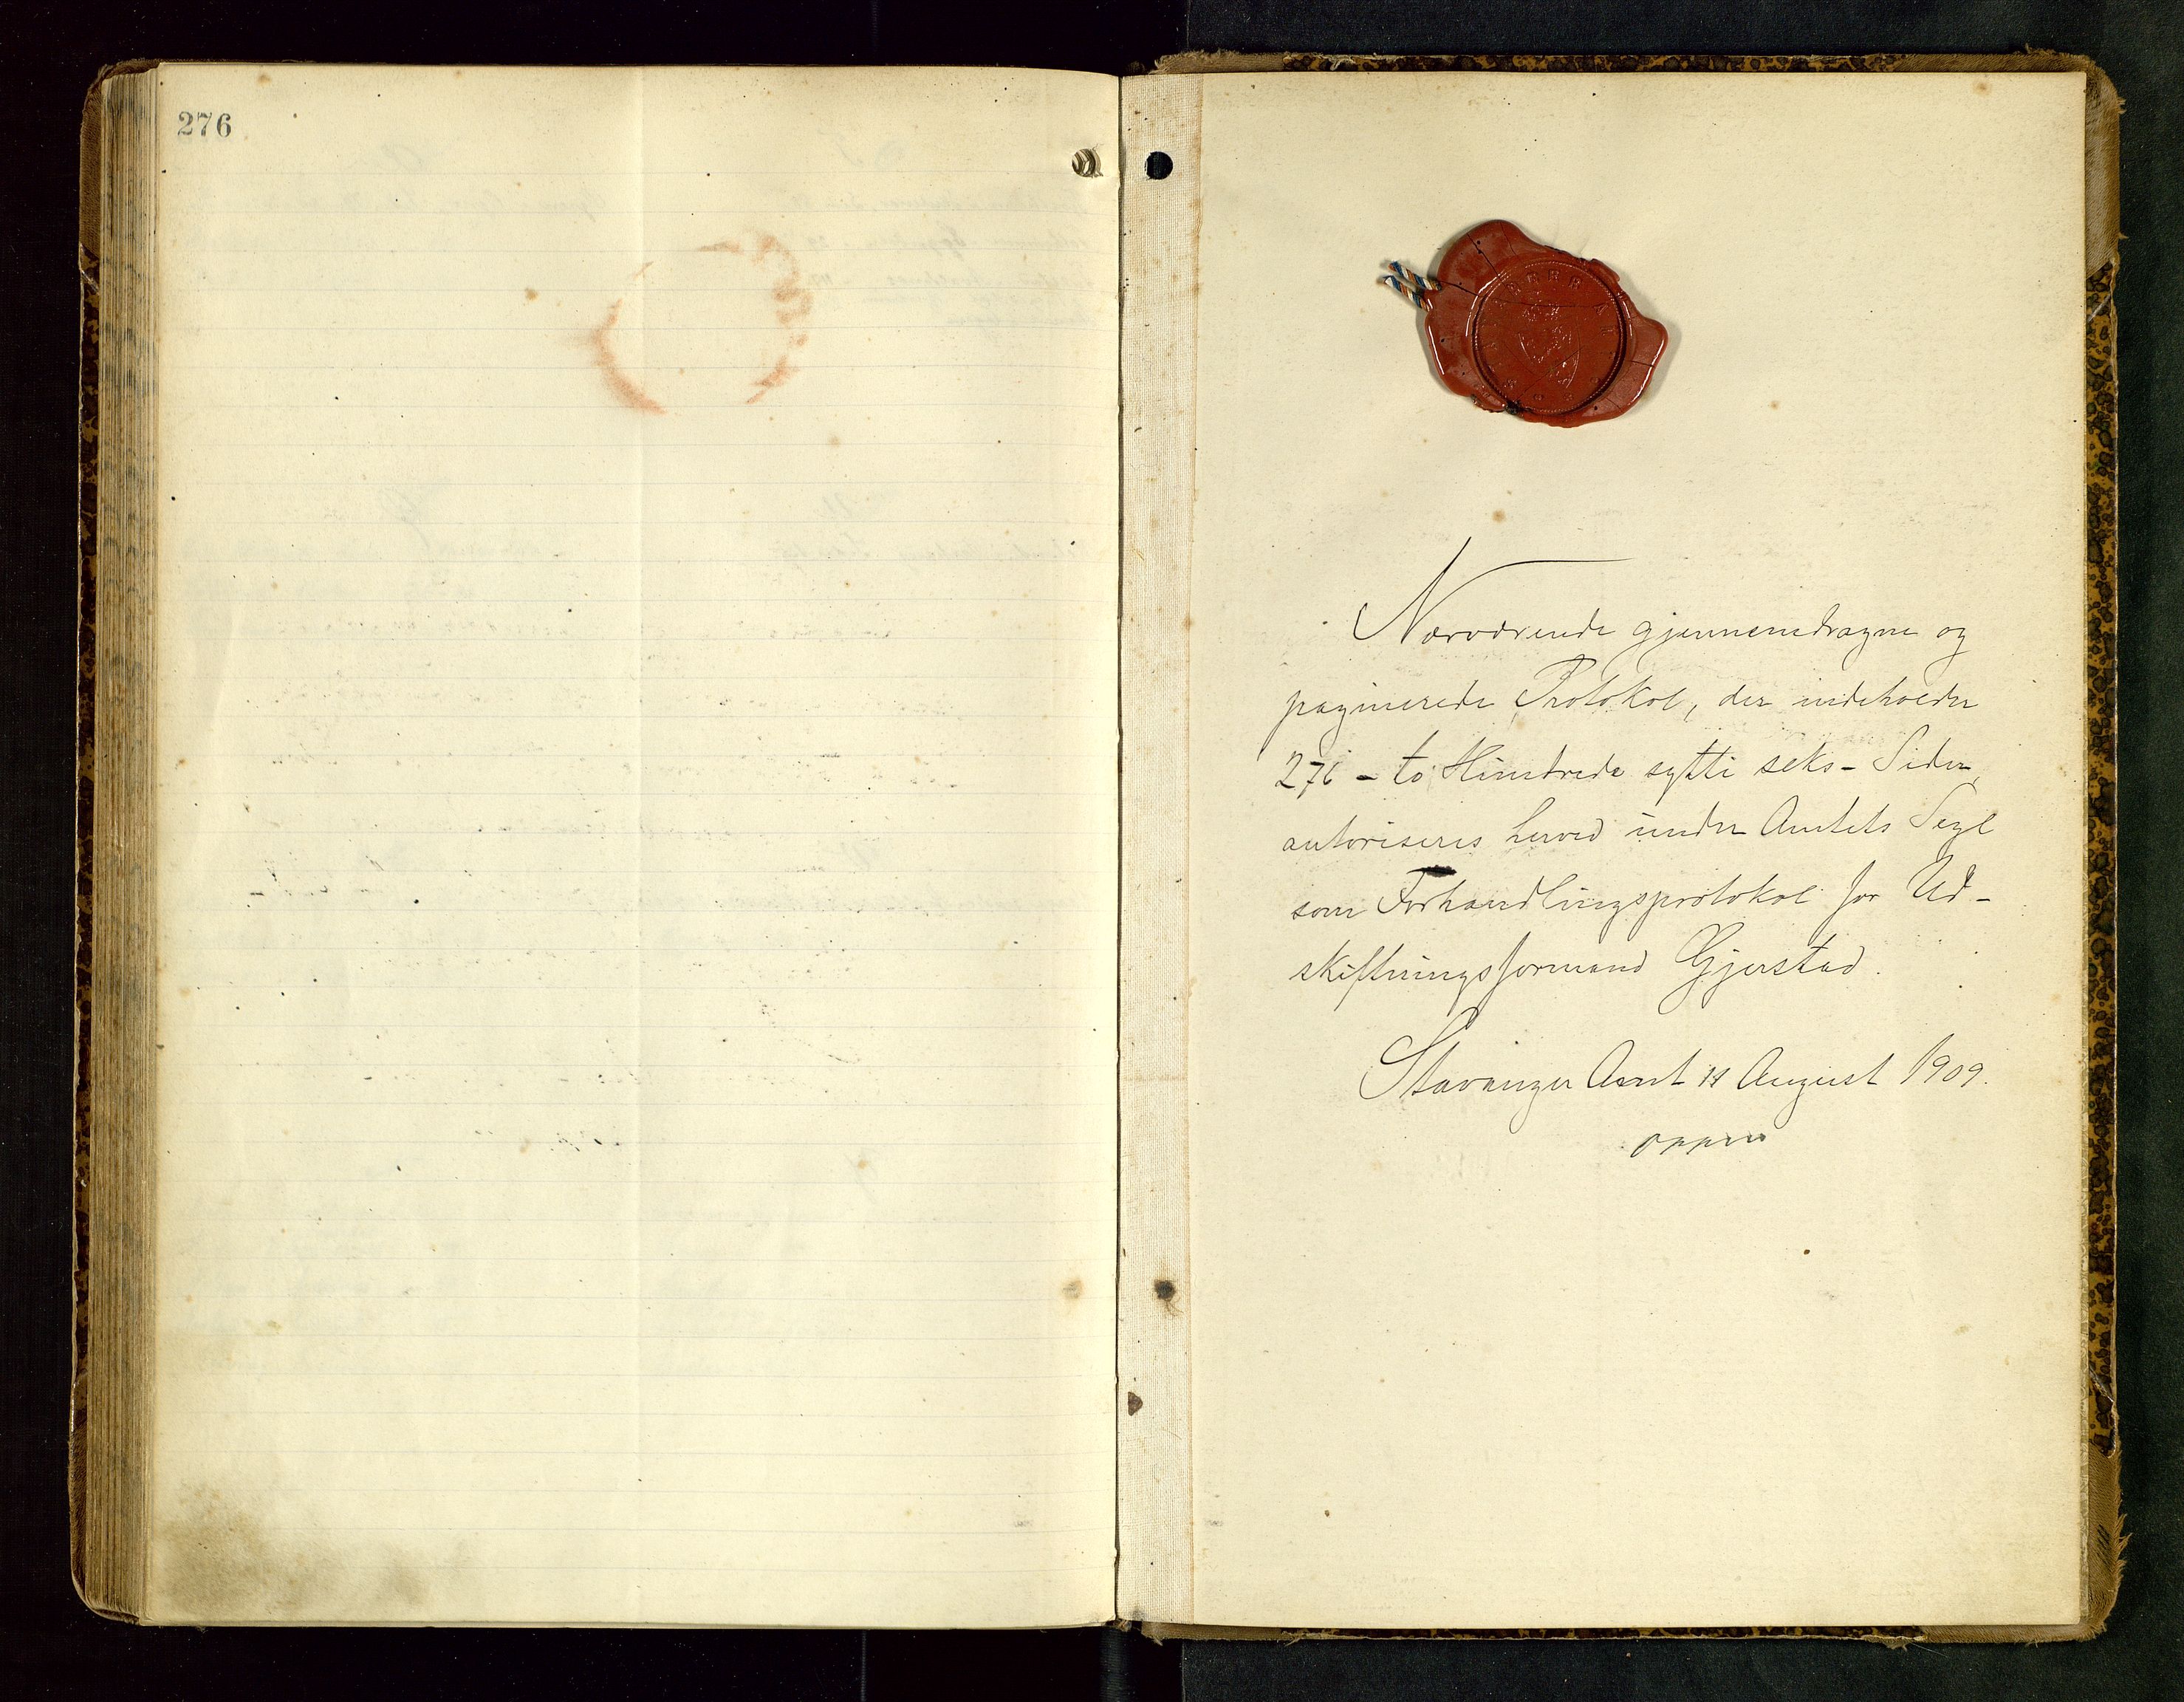 276
Nærværende gjennemdragne og
paginerede Protokol, der indeholder
276 - to Hundrede sytti seks - Sider,
autoriseres herved under Amtets Segl
som Forhandlingsprotokol for Ud-
skiftningsformand Gjerstad.
Stavanger Amt 11 August 1909.